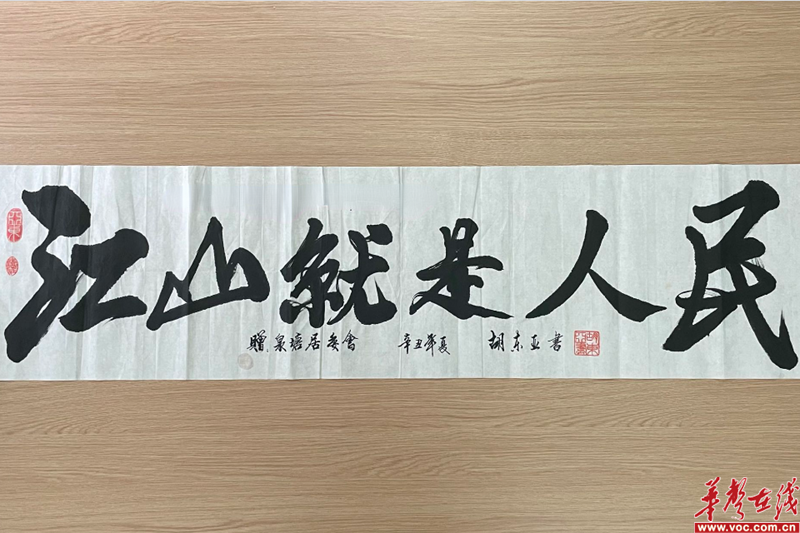 江山就是人民
赠泉塘居委會 辛丑年夏 胡东亚书
华声在线
www.voc.com.cn